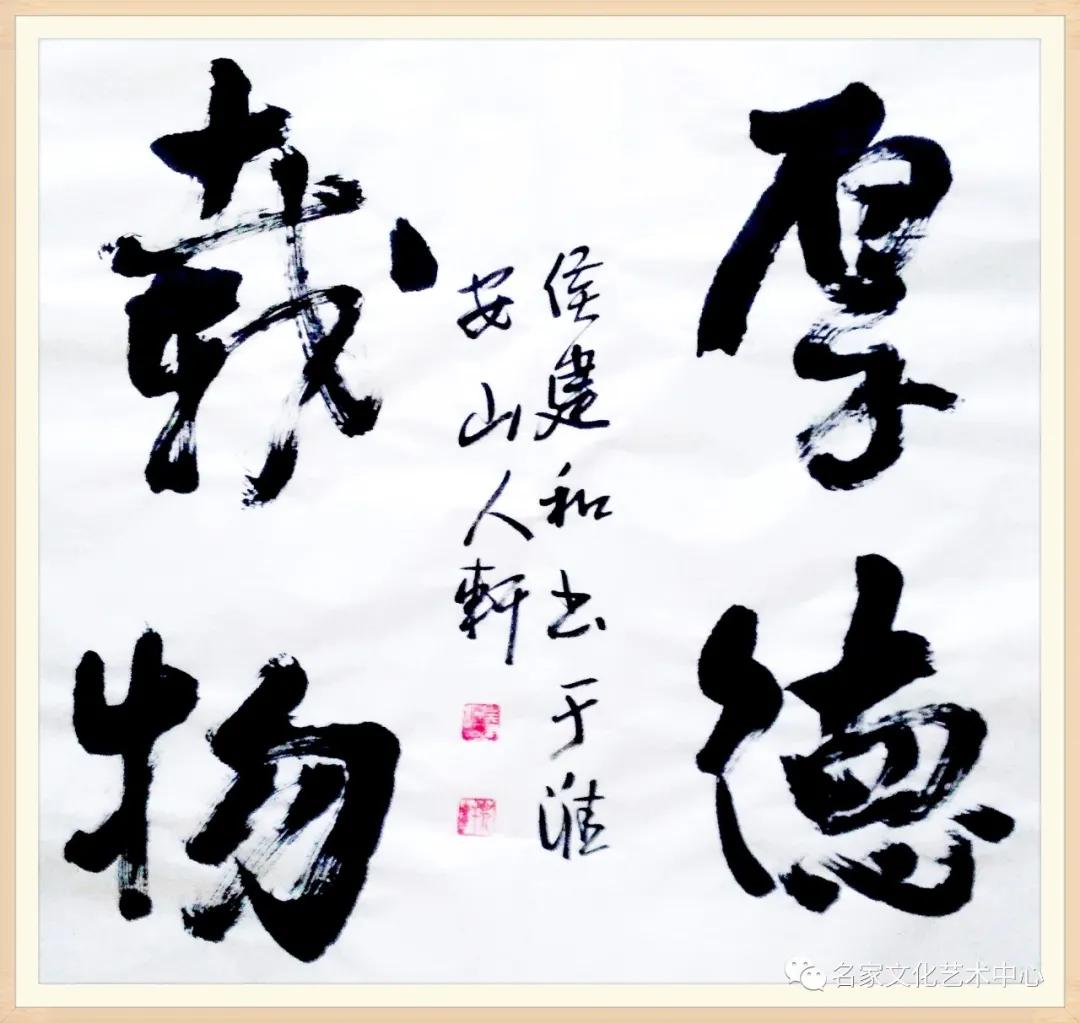 厚德
載物
侯建和书于淮
安山人軒
名家文化艺术中心